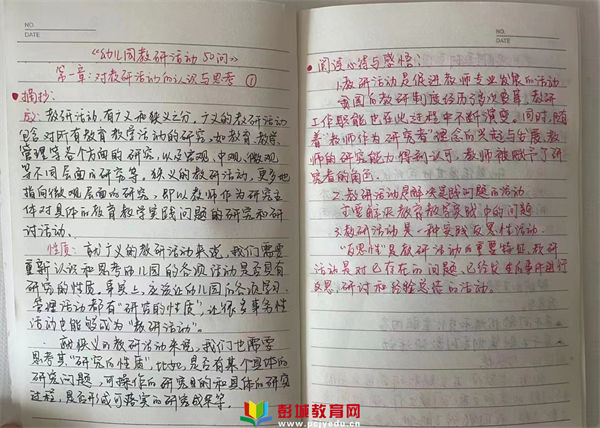 NO.
DATE
《幼儿园教研活动50问》
第一章:对教研活动的认识与思考 ①
摘抄:
教研活动有广义和狭义之分,广义的教研活动
包含对所有教育教学活动的研究,如教育、教学、
管理等各个方面的研究,以及宏观、中观、微观
等不同层面的研究等。狭义的教研活动,更多地
指向微观层面的研究,即以教师作为研究主
体对具体的教育教学实践问题的研究和研
讨活动。
性质:就广义的教研活动来说,我们需要
重新认识和思考幼儿园的各项活动是否具有
研究的性质。事实上,应该让幼儿园的各项学习、
管理活动都有“研究的性质”,让很多事务性
活动也能够成为“教研活动”。
就狭义的教研活动来说,我们也需要
思考其“研究的性质”,比如,是否有某个具体的
研究问题,可操作的研究目的和具体的研究
过程,是否形成可落实的研究成果等。
NO.
DATE
阅读心得与感悟:
1.教研活动是促进教师专业发展的活动
我国的教研制度经历多次变革,教研
工作职能也在此过程中不断演变。同时,随
着“教师作为研究者”理念的兴起与发展,教
师的研究能力得到认可,教师被赋予了研
究者的角色。
2.教研活动是解决实践问题的活动
教育教学实践中的问题
3.教研活动是一种实践反思性活动
“反思性”是教研活动的重要特征,教研
活动是对已存在的问题、已经发生的事件进行
反思、研讨和经验总结的活动。
彭城教育网
www.pcjyedu.cn